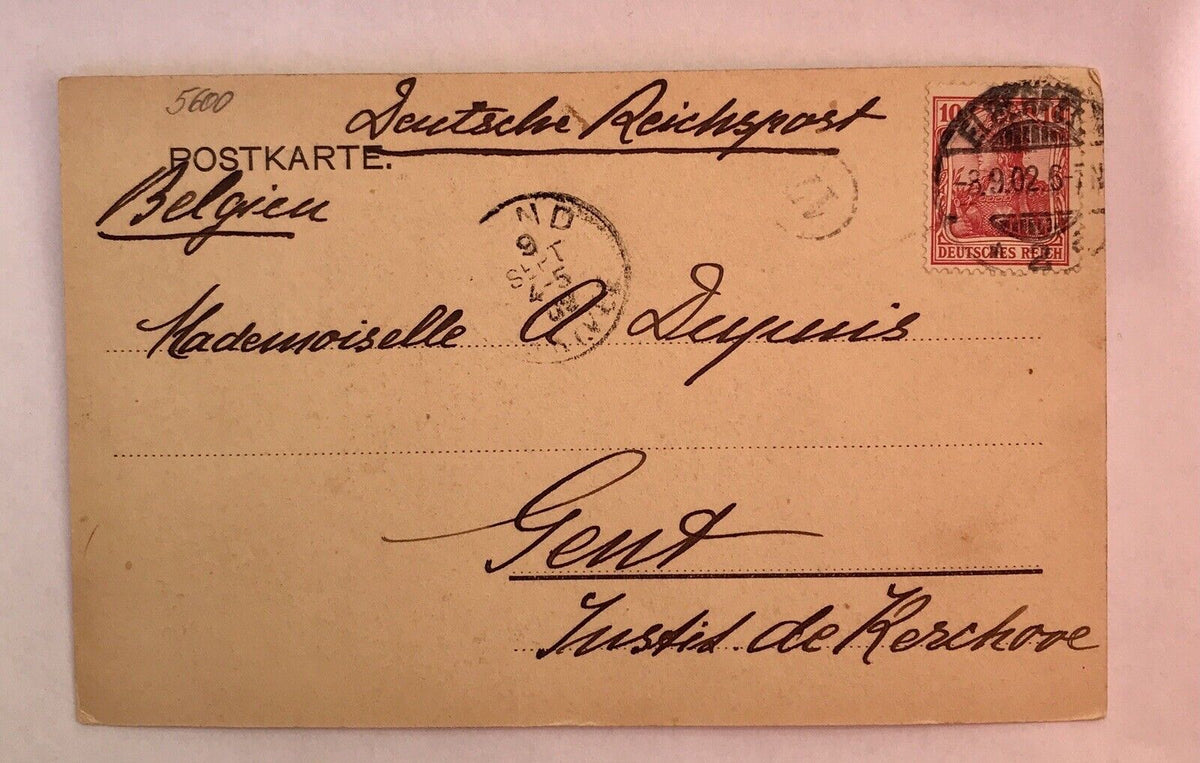 5600
Deutsche Reichspost
POSTKARTE.
Belgien
N
10
-8.9.02.6-7N
DEUTSCHES REICH
ND
9
SEPT
4-5
02
Mademoiselle A Dupuis
Gent
Instit. de Kerchove